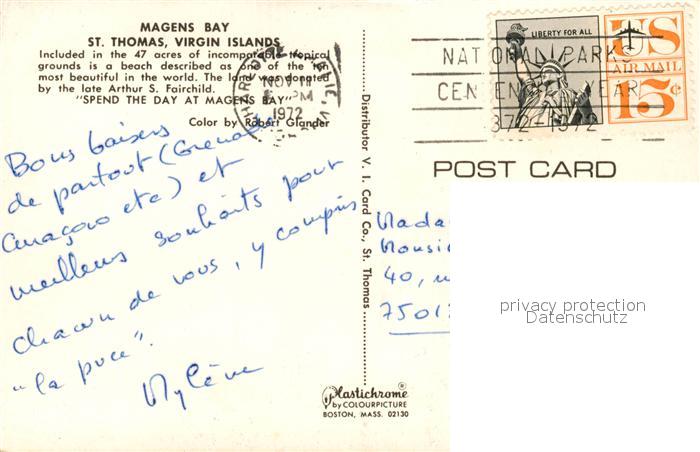 MAGENS BAY
ST. THOMAS, VIRGIN ISLANDS
Included in the 47 acres of incomparable tropical
grounds is a beach described as one of the ten
most beautiful in the world. The land was donated
by the late Arthur S. Fairchild.
"SPEND THE DAY AT MAGENS BAY"
Color by Robert Glander
NOV 11
PM
1972
NATIONAL PARKS
CENTENNIAL YEAR
1872-1972
LIBERTY FOR ALL
US
AIR MAIL
15¢
POST CARD
Bons baisers
de partout (Grenade
Curaçao etc) et
meilleurs souhaits pour
chacun de vous, y compris
"la puce".
Mylène
Distributor V. I. Card Co., St. Thomas
Mada
Monsie
40,
7501
privacy protection
Datenschutz
Plastichrome®
by COLOURPICTURE
BOSTON, MASS. 02130